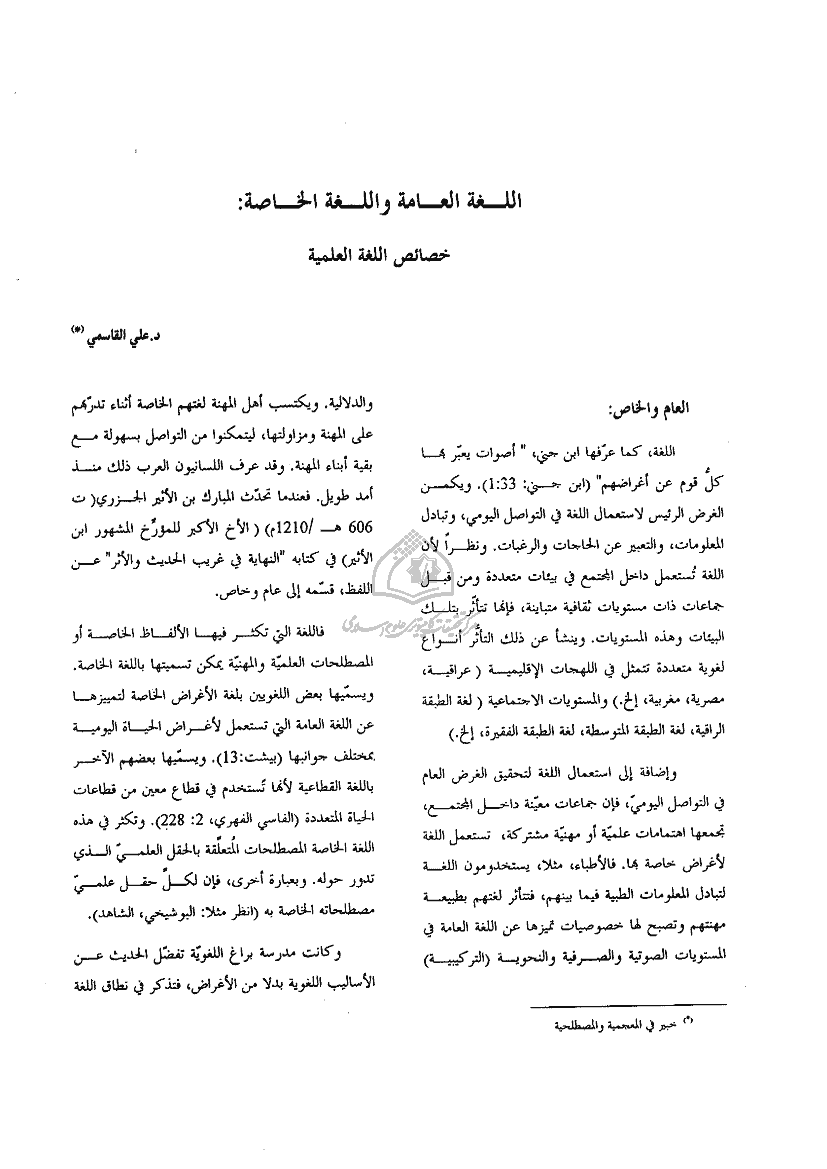 اللغة العامة واللغة الخاصة:
خصائص اللغة العلمية
د.علي القاسمي (*)
العام والخاص:
اللغة، كما عرّفها ابن جني، " أصوات يعبّر بها
كلُّ قوم عن أغراضهم" (ابن جني: 1:33). ويكمن
الغرض الرئيس لاستعمال اللغة في التواصل اليومي، وتبادل
المعلومات، والتعبير عن الحاجات والرغبات. ونظراً لأن
اللغة تُستعمل داخل المجتمع في بيئات متعددة ومن قبل
جماعات ذات مستويات ثقافية متباينة، فإنها تتأثّر بتلك
البيئات وهذه المستويات. وينشأ عن ذلك التأثُّر أنواع
لغوية متعددة تتمثل في اللهجات الإقليمية ( عراقية،
مصرية، مغربية، إلخ.) والمستويات الاجتماعية ( لغة الطبقة
الراقية، لغة الطبقة المتوسطة، لغة الطبقة الفقيرة، إلخ.)
وإضافة إلى استعمال اللغة لتحقيق الغرض العام
في التواصل اليوميّ، فإن جماعات معيّنة داخل المجتمع،
تجمعها اهتمامات علميّة أو مهنيّة مشتركة، تستعمل اللغة
لأغراض خاصة بها. فالأطباء، مثلا، يستخدومون اللغة
لتبادل المعلومات الطبية فيما بينهم، فتتأثر لغتهم بطبيعة
مهنتهم وتصبح لها خصوصيات تميزها عن اللغة العامة في
المستويات الصوتية والصرفية والنحوية (التركيبية)
(*) خبير في المعجمية والمصطلحية
والدلالية. ويكتسب أهل المهنة لغتهم الخاصة أثناء تدرّبهم
على المهنة ومزاولتها، ليتمكنوا من التواصل بسهولة مع
بقية أبناء المهنة. وقد عرف اللسانيون العرب ذلك منذ
أمد طويل. فعندما تحدّث المبارك بن الأثير الجزري( ت
606 هـ /1210م) ( الأخ الأكبر للمؤرِّخ المشهور ابن
الأثير) في كتابه "النهاية في غريب الحديث والأثر" عن
اللفظ، قسّمه إلى عام وخاص.
فاللغة التي تكثر فيها الألفاظ الخاصة أو
المصطلحات العلميّة والمهنيّة يمكن تسميتها باللغة الخاصة.
ويسمّيها بعض اللغويين بلغة الأغراض الخاصة لتمييزها
عن اللغة العامة التي تستعمل لأغراض الحياة اليومية
بمختلف جوانبها (بيشت:13). ويسمّيها بعضهم الآخر
باللغة القطاعية لأنها تُستخدم في قطاع معين من قطاعات
الحياة المتعددة (الفاسي الفهري، 2: 228). وتكثر في هذه
اللغة الخاصة المصطلحات المُتعلّقة بالحقل العلميّ الذي
تدور حوله. وبعبارة أخرى، فإن لكلِّ حقل علميّ
مصطلحاته الخاصة به (انظر مثلا: البوشيخي، الشاهد).
وكانت مدرسة براغ اللغويّة تفضّل الحديث عن
الأساليب اللغوية بدلا من الأغراض، فتذكر في نطاق اللغة